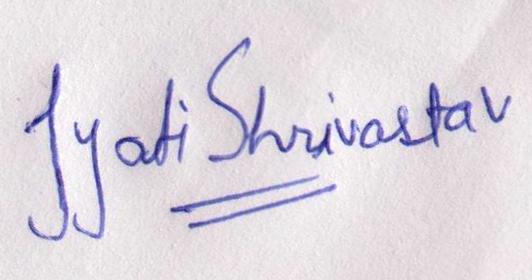 Jyoti Shrivastav